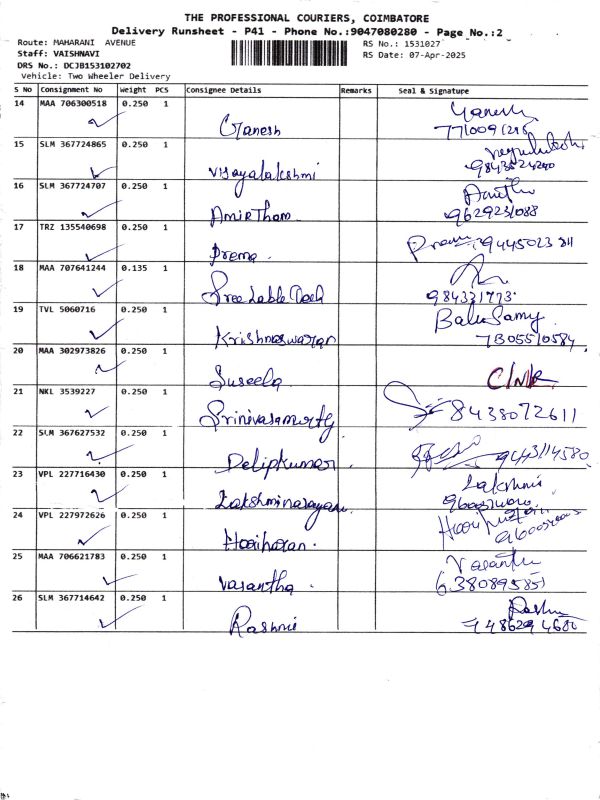 THE PROFESSIONAL COURIERS, COIMBATORE
Delivery Runsheet - P41 - Phone No.:9047080280 - Page No.:2
Route: MAHARANI AVENUE
RS No.: 1531027
Staff: VAISHNAVI
RS Date: 07-Apr-2025
DRS No.: DCJB153102702
Vehicle: Two Wheeler Delivery
S No Consignment No Weight PCS Consignee Details Remarks Seal & Signature
14 MAA 706300518 0.250 1
Ganesh
15 SLM 367724865 0.250 1
Vijayalakshmi
16 SLM 367724707 0.250 1
Amirtham
9629231088
17 TRZ 135540698 0.250 1
Prema.
18 MAA 707641244 0.135 1
Sree Lable Tech
984331773
19 TVL 5060716 0.250 1
Balu Samy
Krishnaswaran
7305510584
20 MAA 302973826 0.250 1
Suseela
21 NKL 3539227 0.250 1
Srinivasamurty
8438072611
22 SLM 367627532 0.250 1
Delipkumar
9443114580
23 VPL 227716430 0.250 1
Lakshmi
Lakshminarayan
24 VPL 227972626 0.250 1
Hariharan.
25 MAA 706621783 0.250 1
Vasantha
Vasantha.
26 SLM 367714642 0.250 1
Rashmi